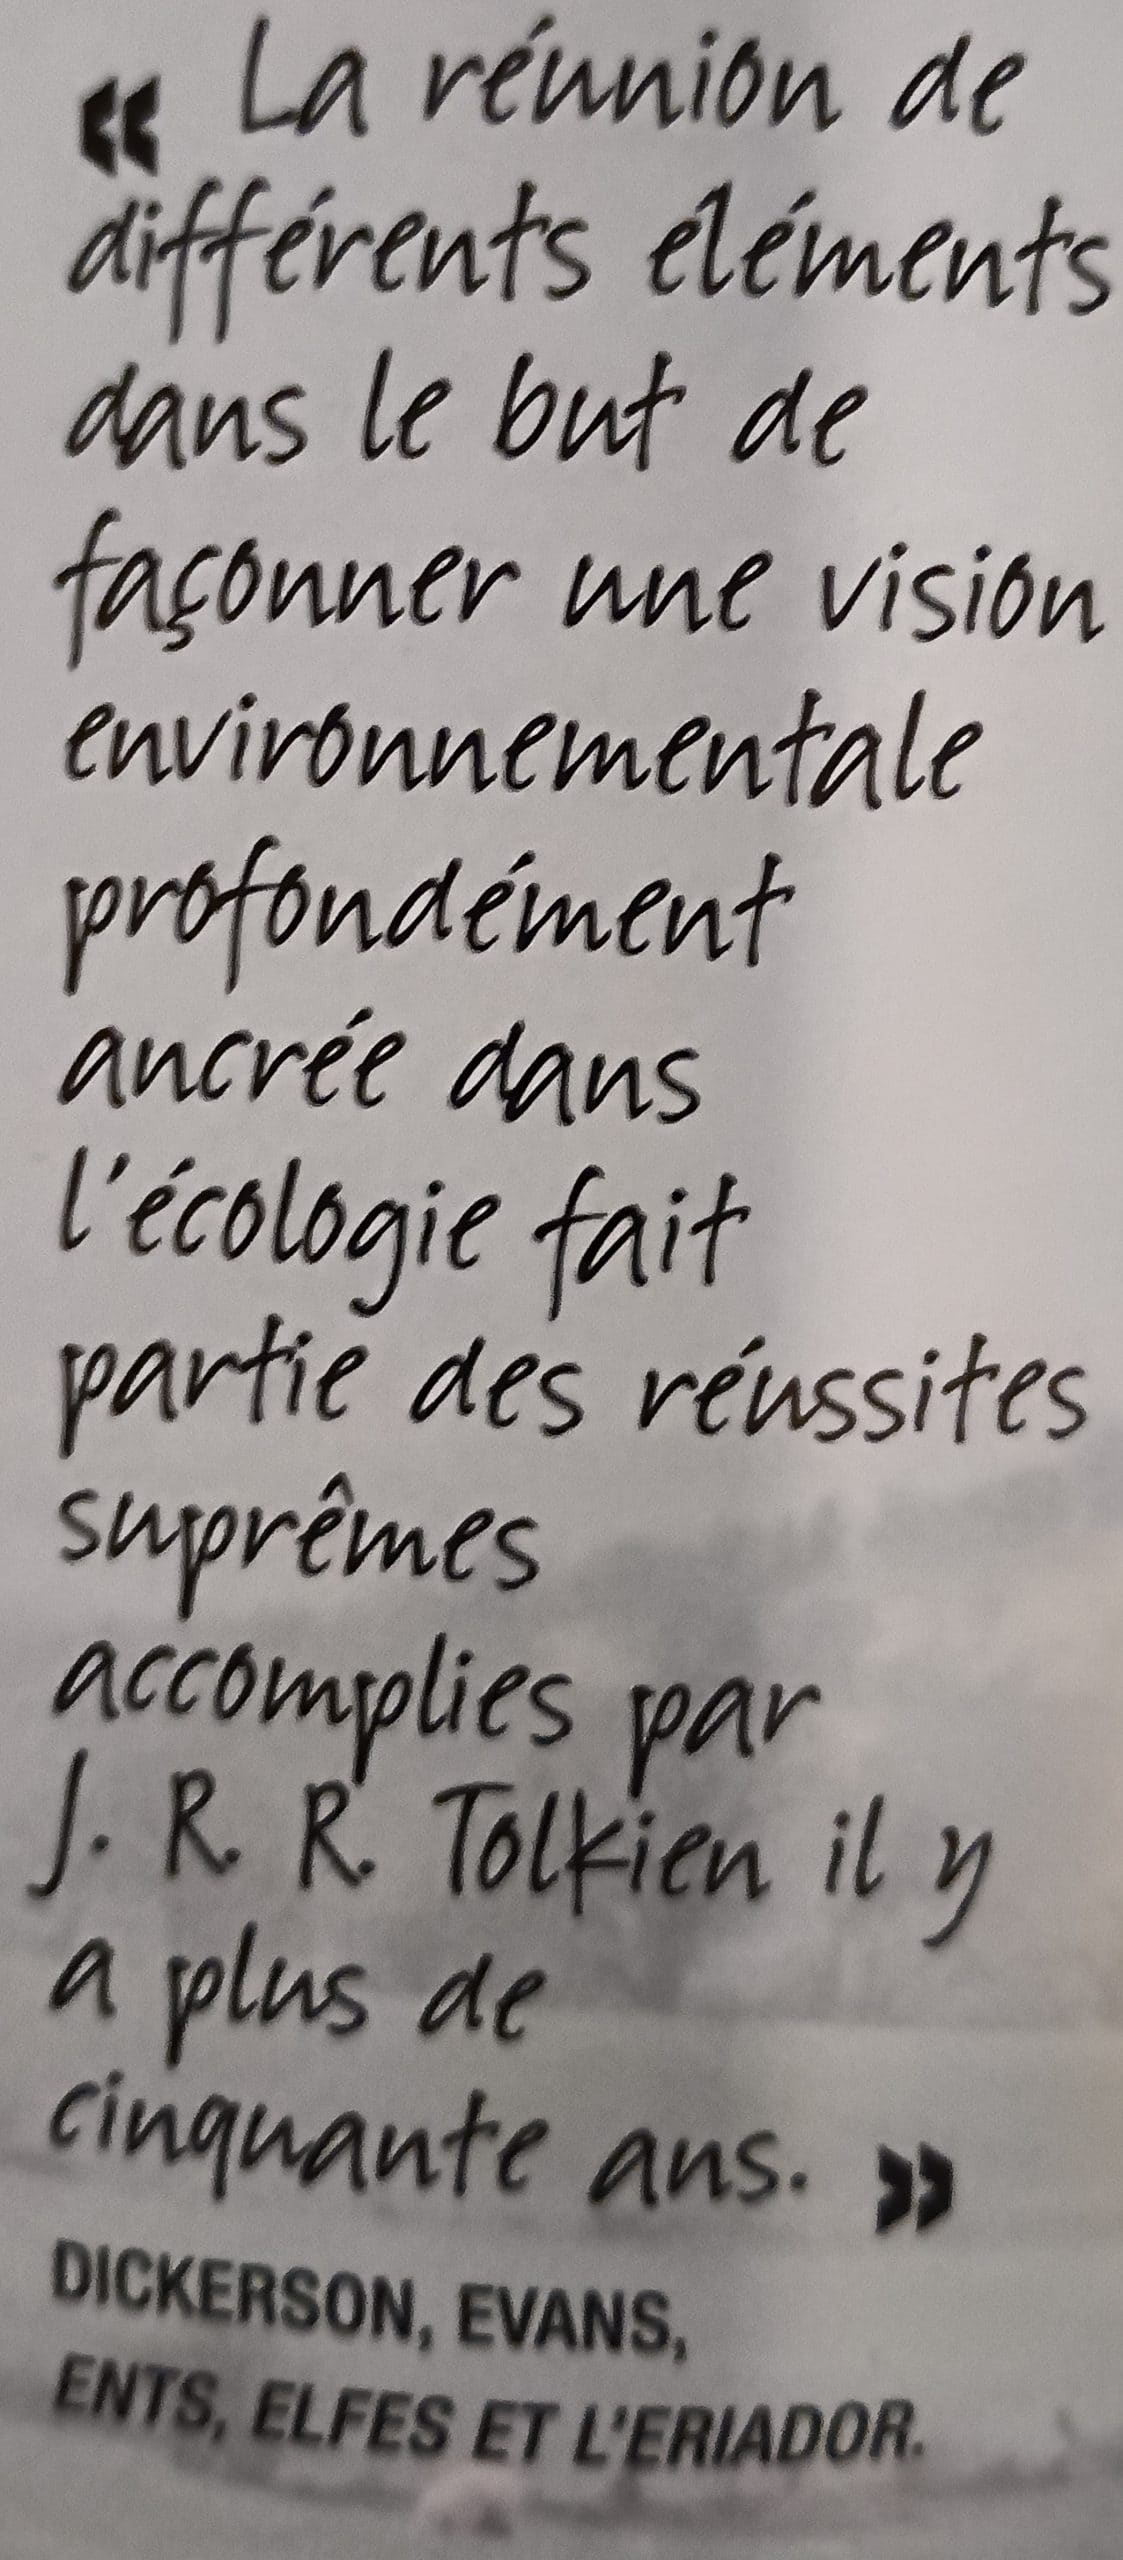 « La réunion de
différents éléments
dans le but de
façonner une vision
environnementale
profondément
ancrée dans
l'écologie fait
partie des réussites
suprêmes
accomplies par
J. R. R. Tolkien il y
a plus de
cinquante ans. »
DICKERSON, EVANS,
ENTS, ELFES ET L'ERIADOR.